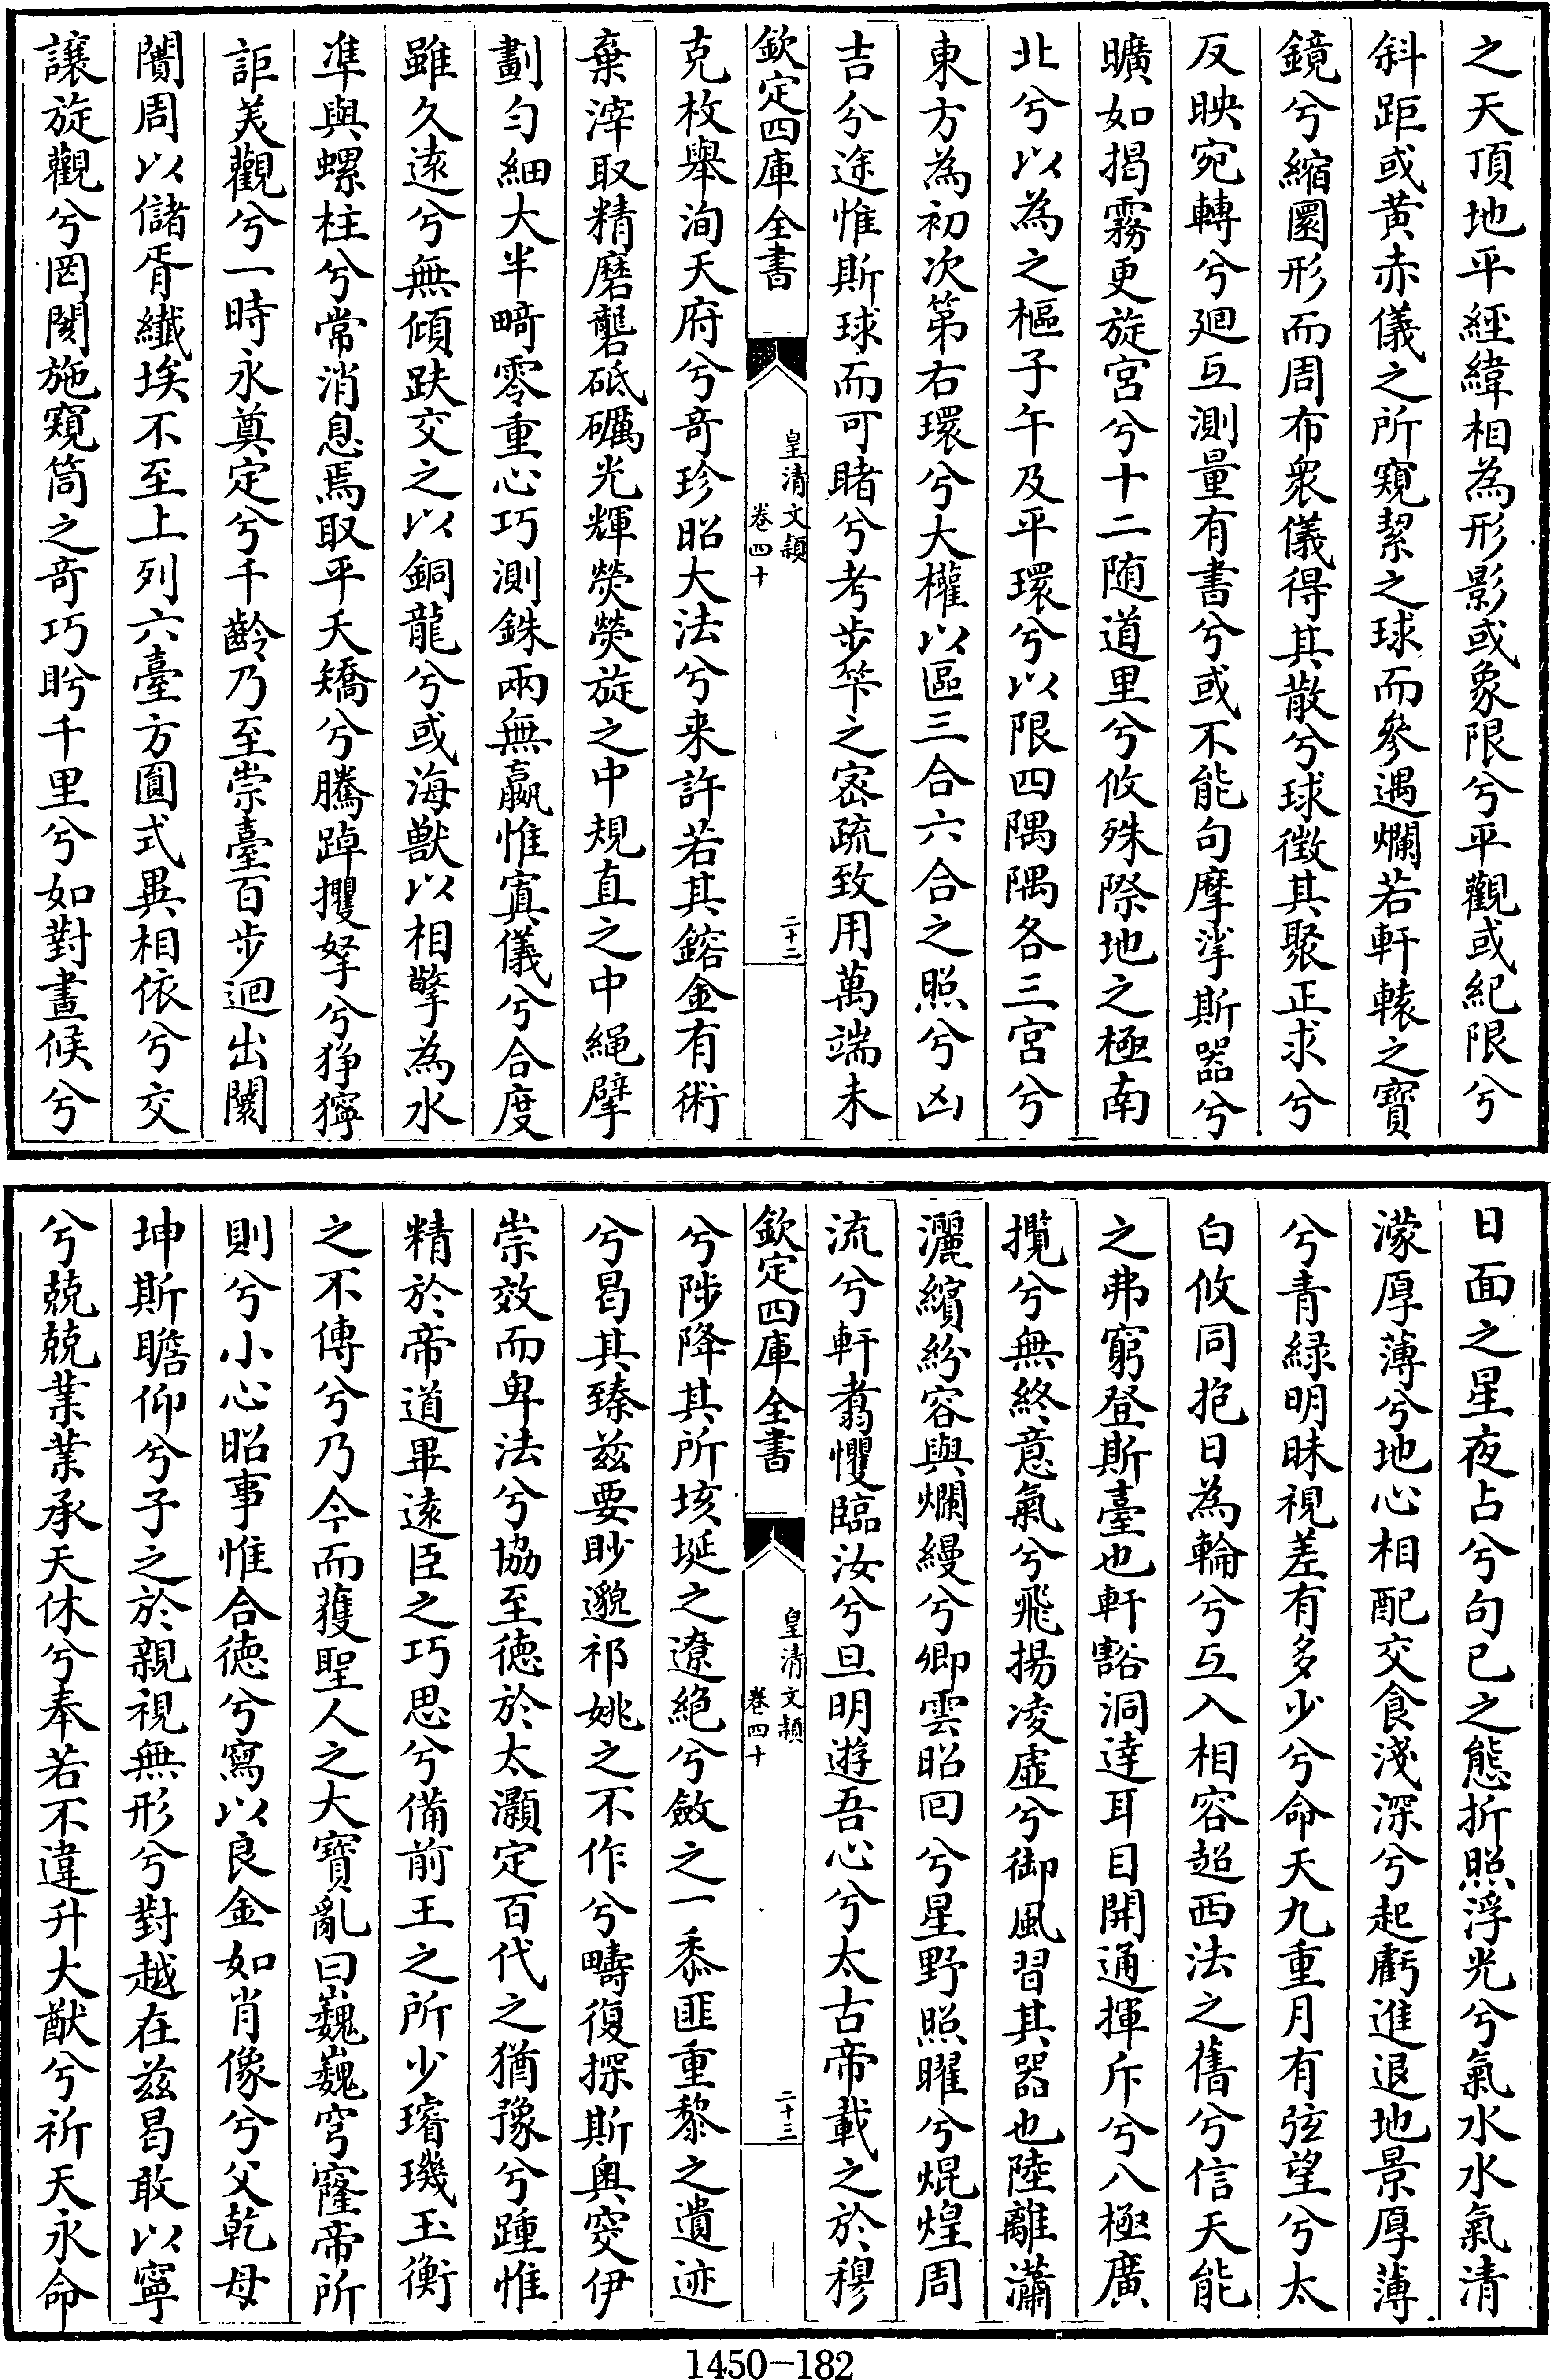 之天頂地平經緯相為形影或象限兮平觀或紀限兮
斜距或黄赤儀之所窺絜之球而參遇爛若軒轅之寶
鏡兮縮圜形而周布衆儀得其散兮球徴其聚正求兮
反映宛轉兮廻互測量有書兮或不能句摩挲斯器兮
曠如揭霧更旋宮兮十二随道里兮攸殊際地之極南
北兮以為之樞子午及平環兮以限四隅隅各三宮兮
東方為初次第右環兮大權以區三合六合之照兮凶
吉分途惟斯球而可睹兮考步筭之宻疏致用萬端未
欽定四庫全書
皇清文頴
卷四十
二十二
克枚舉洵天府兮竒珍昭大法兮来許若其鎔金有術
棄滓取精磨礱砥礪光輝熒熒旋之中規直之中繩擘
劃匀細大半畸零重心巧測銖兩無贏惟寘儀兮合度
雖久逺兮無傾趺交之以銅龍兮或海獸以相擎為水
凖與螺柱兮常消息焉取平夭矯兮騰踔攫拏兮猙獰
詎美觀兮一時永奠定兮千齡乃至崇臺百步迥出闤
闠周以儲胥纎埃不至上列六臺方圓式異相依兮交
讓旋觀兮罔閡施窺筒之竒巧盻千里兮如對晝候兮
日面之星夜占兮句已之態折照浮光兮氣水水氣清
濛厚薄兮地心相配交食淺深兮起虧進退地景厚薄
兮青緑明昧視差有多少兮命天九重月有弦望兮太
白攸同抱日為輪兮互入相容超西法之舊兮信天能
之弗窮登斯臺也軒豁洞達耳目開通揮斥兮八極廣
攬兮無終意氣兮飛揚凌虚兮御風習其器也陸離瀟
灑繽紛容與爛縵兮卿雲昭囘兮星野照曜兮焜煌周
流兮軒翥懼臨汝兮旦明遊吾心兮太古帝載之於穆
欽定四庫全書
皇清文頴
卷四十
二十三
兮陟降其所垓埏之遼絶兮斂之一黍匪重黎之遺迹
兮曷其臻兹要眇邈祁姚之不作兮疇復探斯奥突伊
崇效而卑法兮協至徳於太灝定百代之猶豫兮踵惟
精於帝道畢逺臣之巧思兮備前王之所少璿璣玉衡
之不傳兮乃今而䕶聖人之大寶亂曰巍巍穹窿帝所
則兮小心昭事惟合徳兮寫以良金如肖像兮父乾母
坤斯瞻仰兮子之於親視無形兮對越在兹曷敢以寧
兮兢兢業業承天休兮奉若不違升大猷兮祈天永命
1450-182